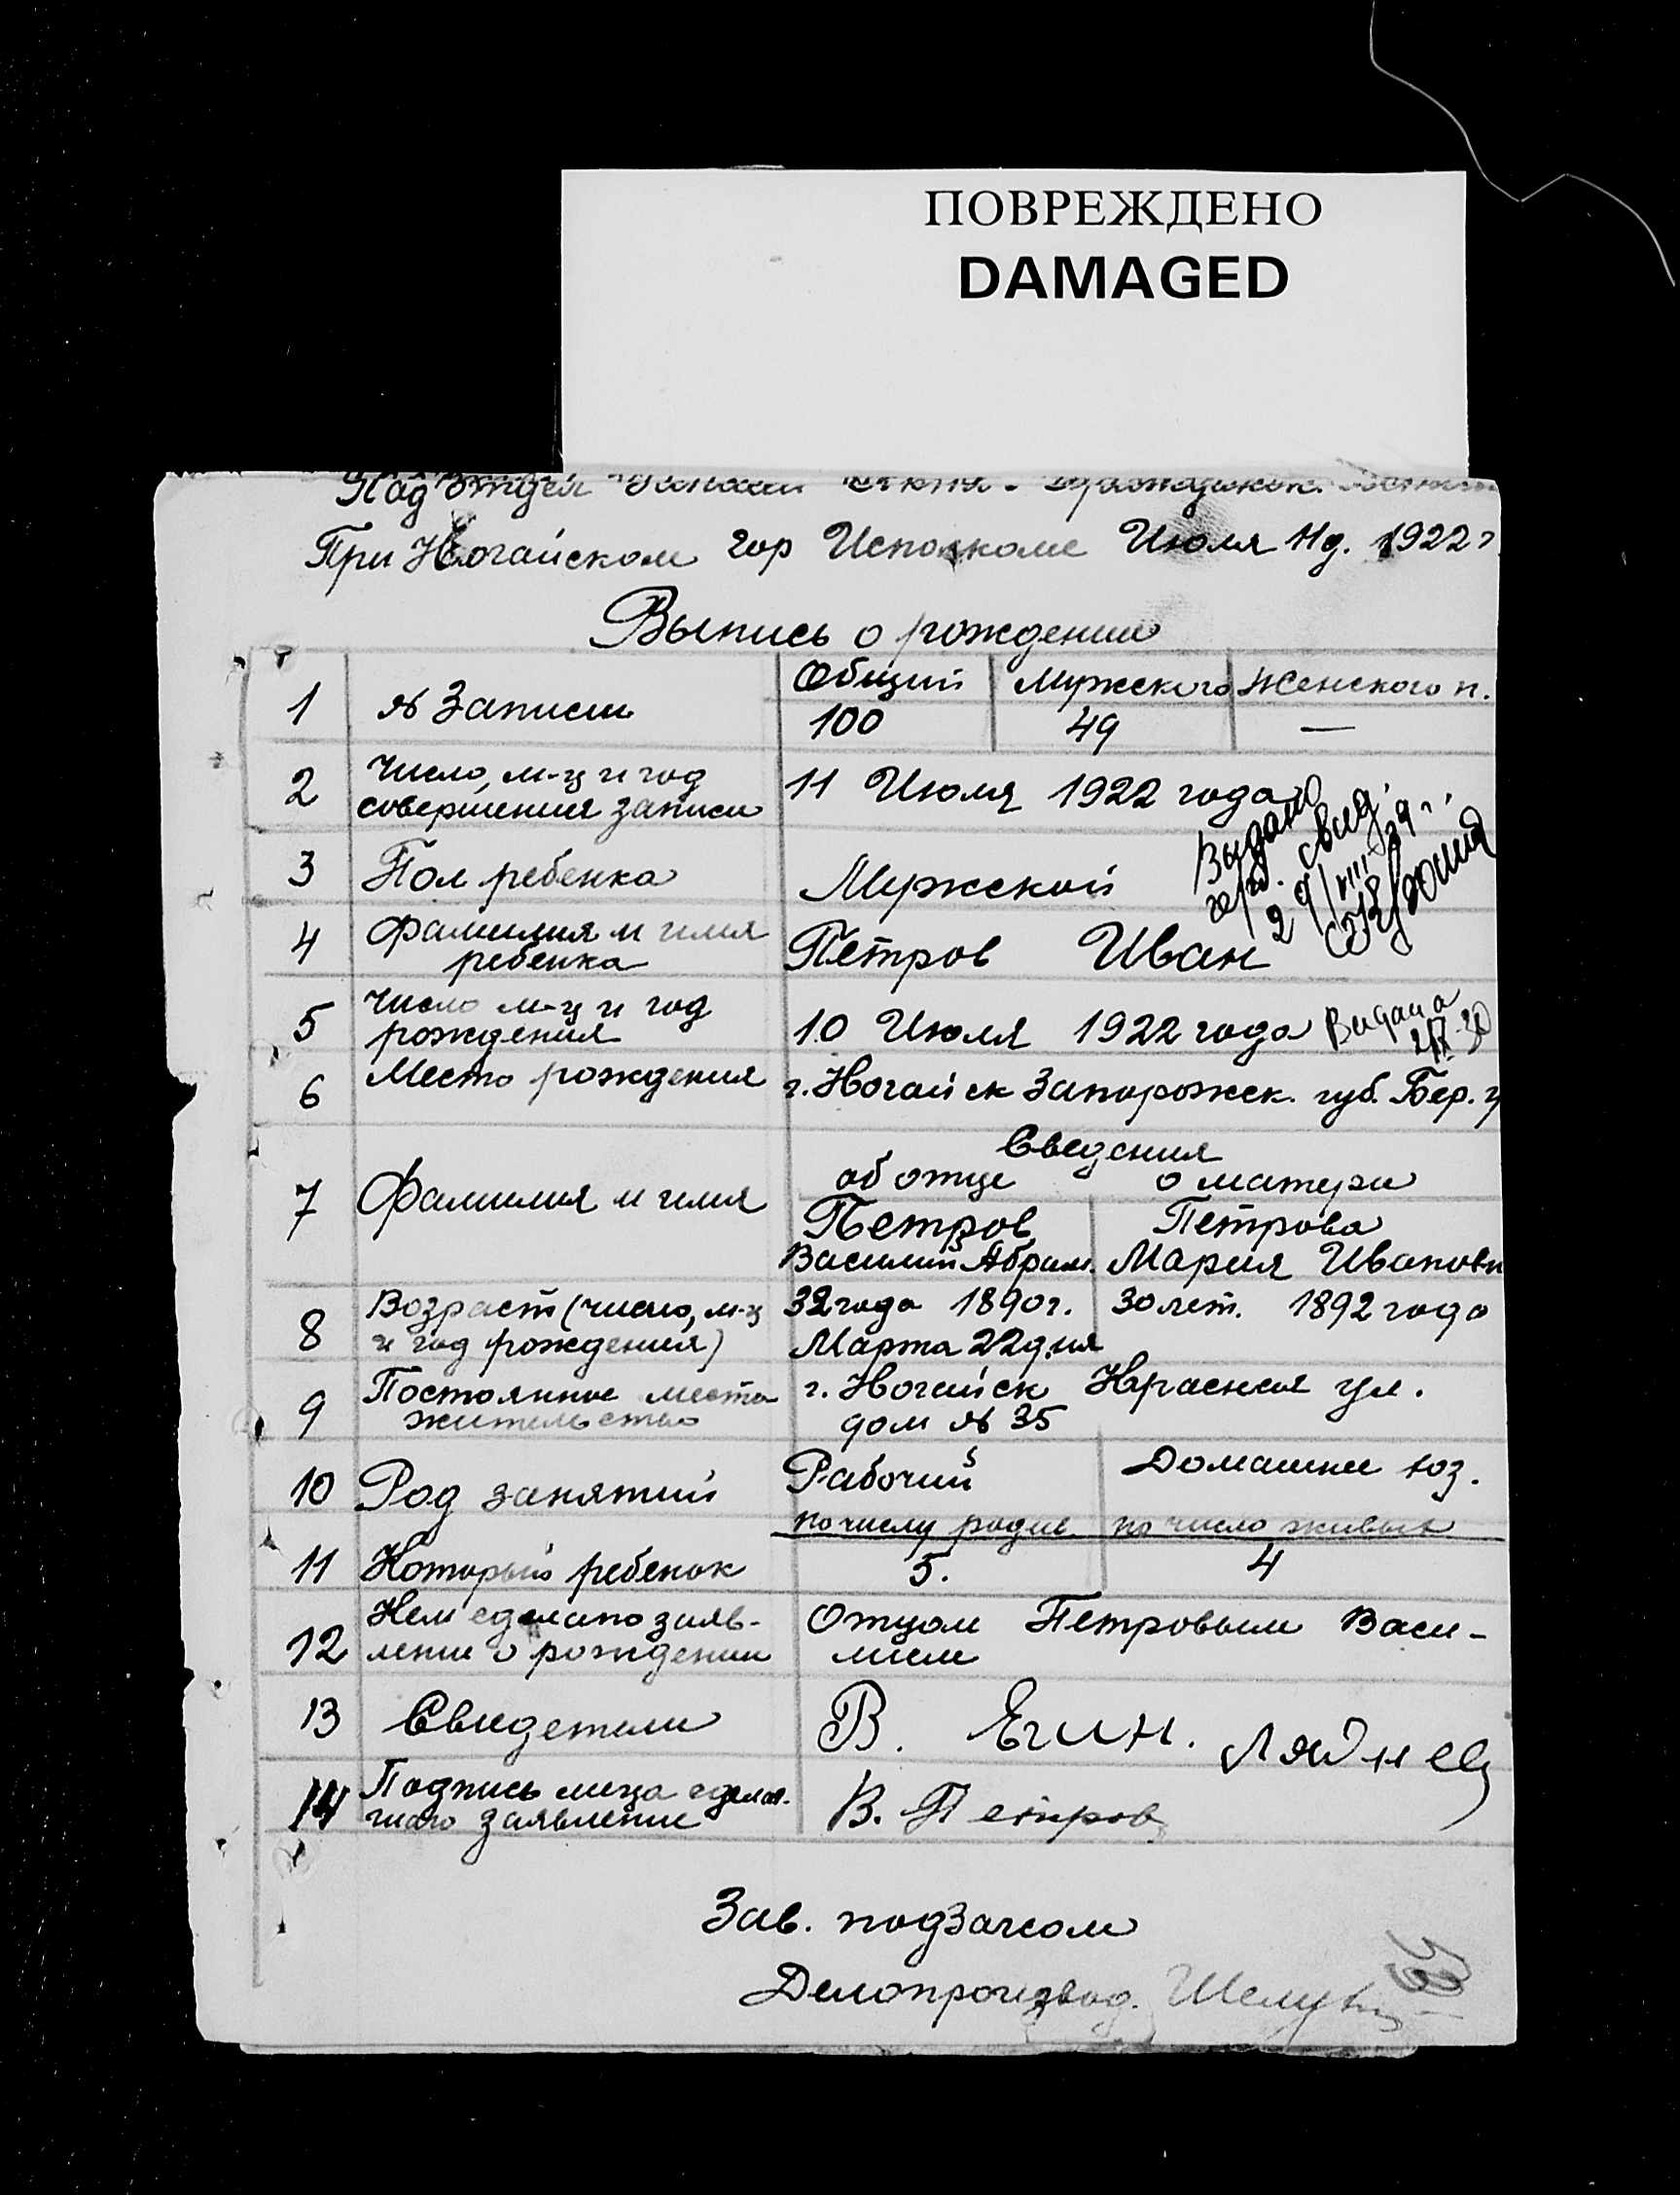 ПОВРЕЖДЕНО
DAMAGED
Под Отдел Записи
При Ногайском гор Исполкоме Июля 11 д. 1922 г
Выпись о рождении
1 № Записи Общий Мужского Женского п.
100 49 —
2 Число, м-ц и год
совершения записи
11 Июля 1922 года
3 Пол ребенка Мужской
Выдано
свид.
29/VIII 39 г.
4 Фамилия и имя
ребенка
Петров Иван
5 Число м-ц и год
рождения
10 Июля 1922 года
Видана
6 Место рождения г. Ногайск Запорожск. губ. Бер. у
Сведения
об отце о матери
7 Фамилия и имя
Петров Петрова
Василий Абрам. Мария Ивановн
8 Возраст (число, м-ц
и год рождения)
32 года 1890 г. 30 лет. 1892 года
Марта 22 дня
9 Постоянное место
жительство
г. Ногайск Красная ул.
дом № 35
10 Род занятий Рабочий Домашнее хоз.
по числу родив. по число живых
11 Который ребенок 5. 4
12 Кем сделано заяв-
ление о рождении
Отцом Петровым Васи-
лием
13 Свидетели В. Егин. Ляднец
14 Подпись лица сделав.
шаго заявление
В. Петров
Зав. подзагсом
Делопроизвод.